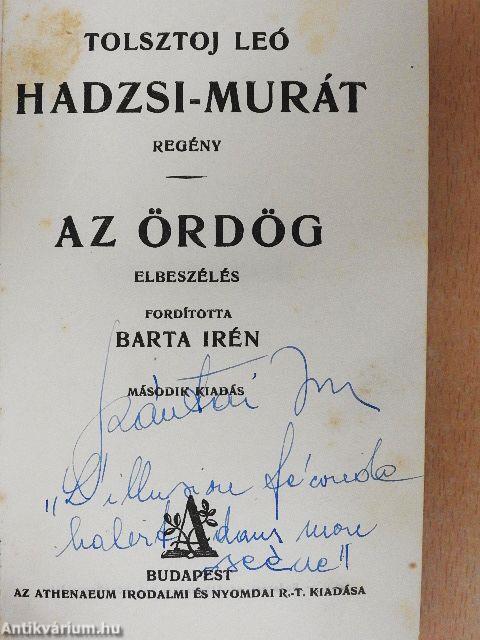 TOLSZTOJ LEÓ
HADZSI-MURÁT
REGÉNY
AZ ÖRDÖG
ELBESZÉLÉS
FORDÍTOTTA
BARTA IRÉN
MÁSODIK KIADÁS
„L'illusion féconde
dans mon
A
BUDAPEST
AZ ATHENAEUM IRODALMI ÉS NYOMDAI R.-T. KIADÁSA
Antikvárium.hu